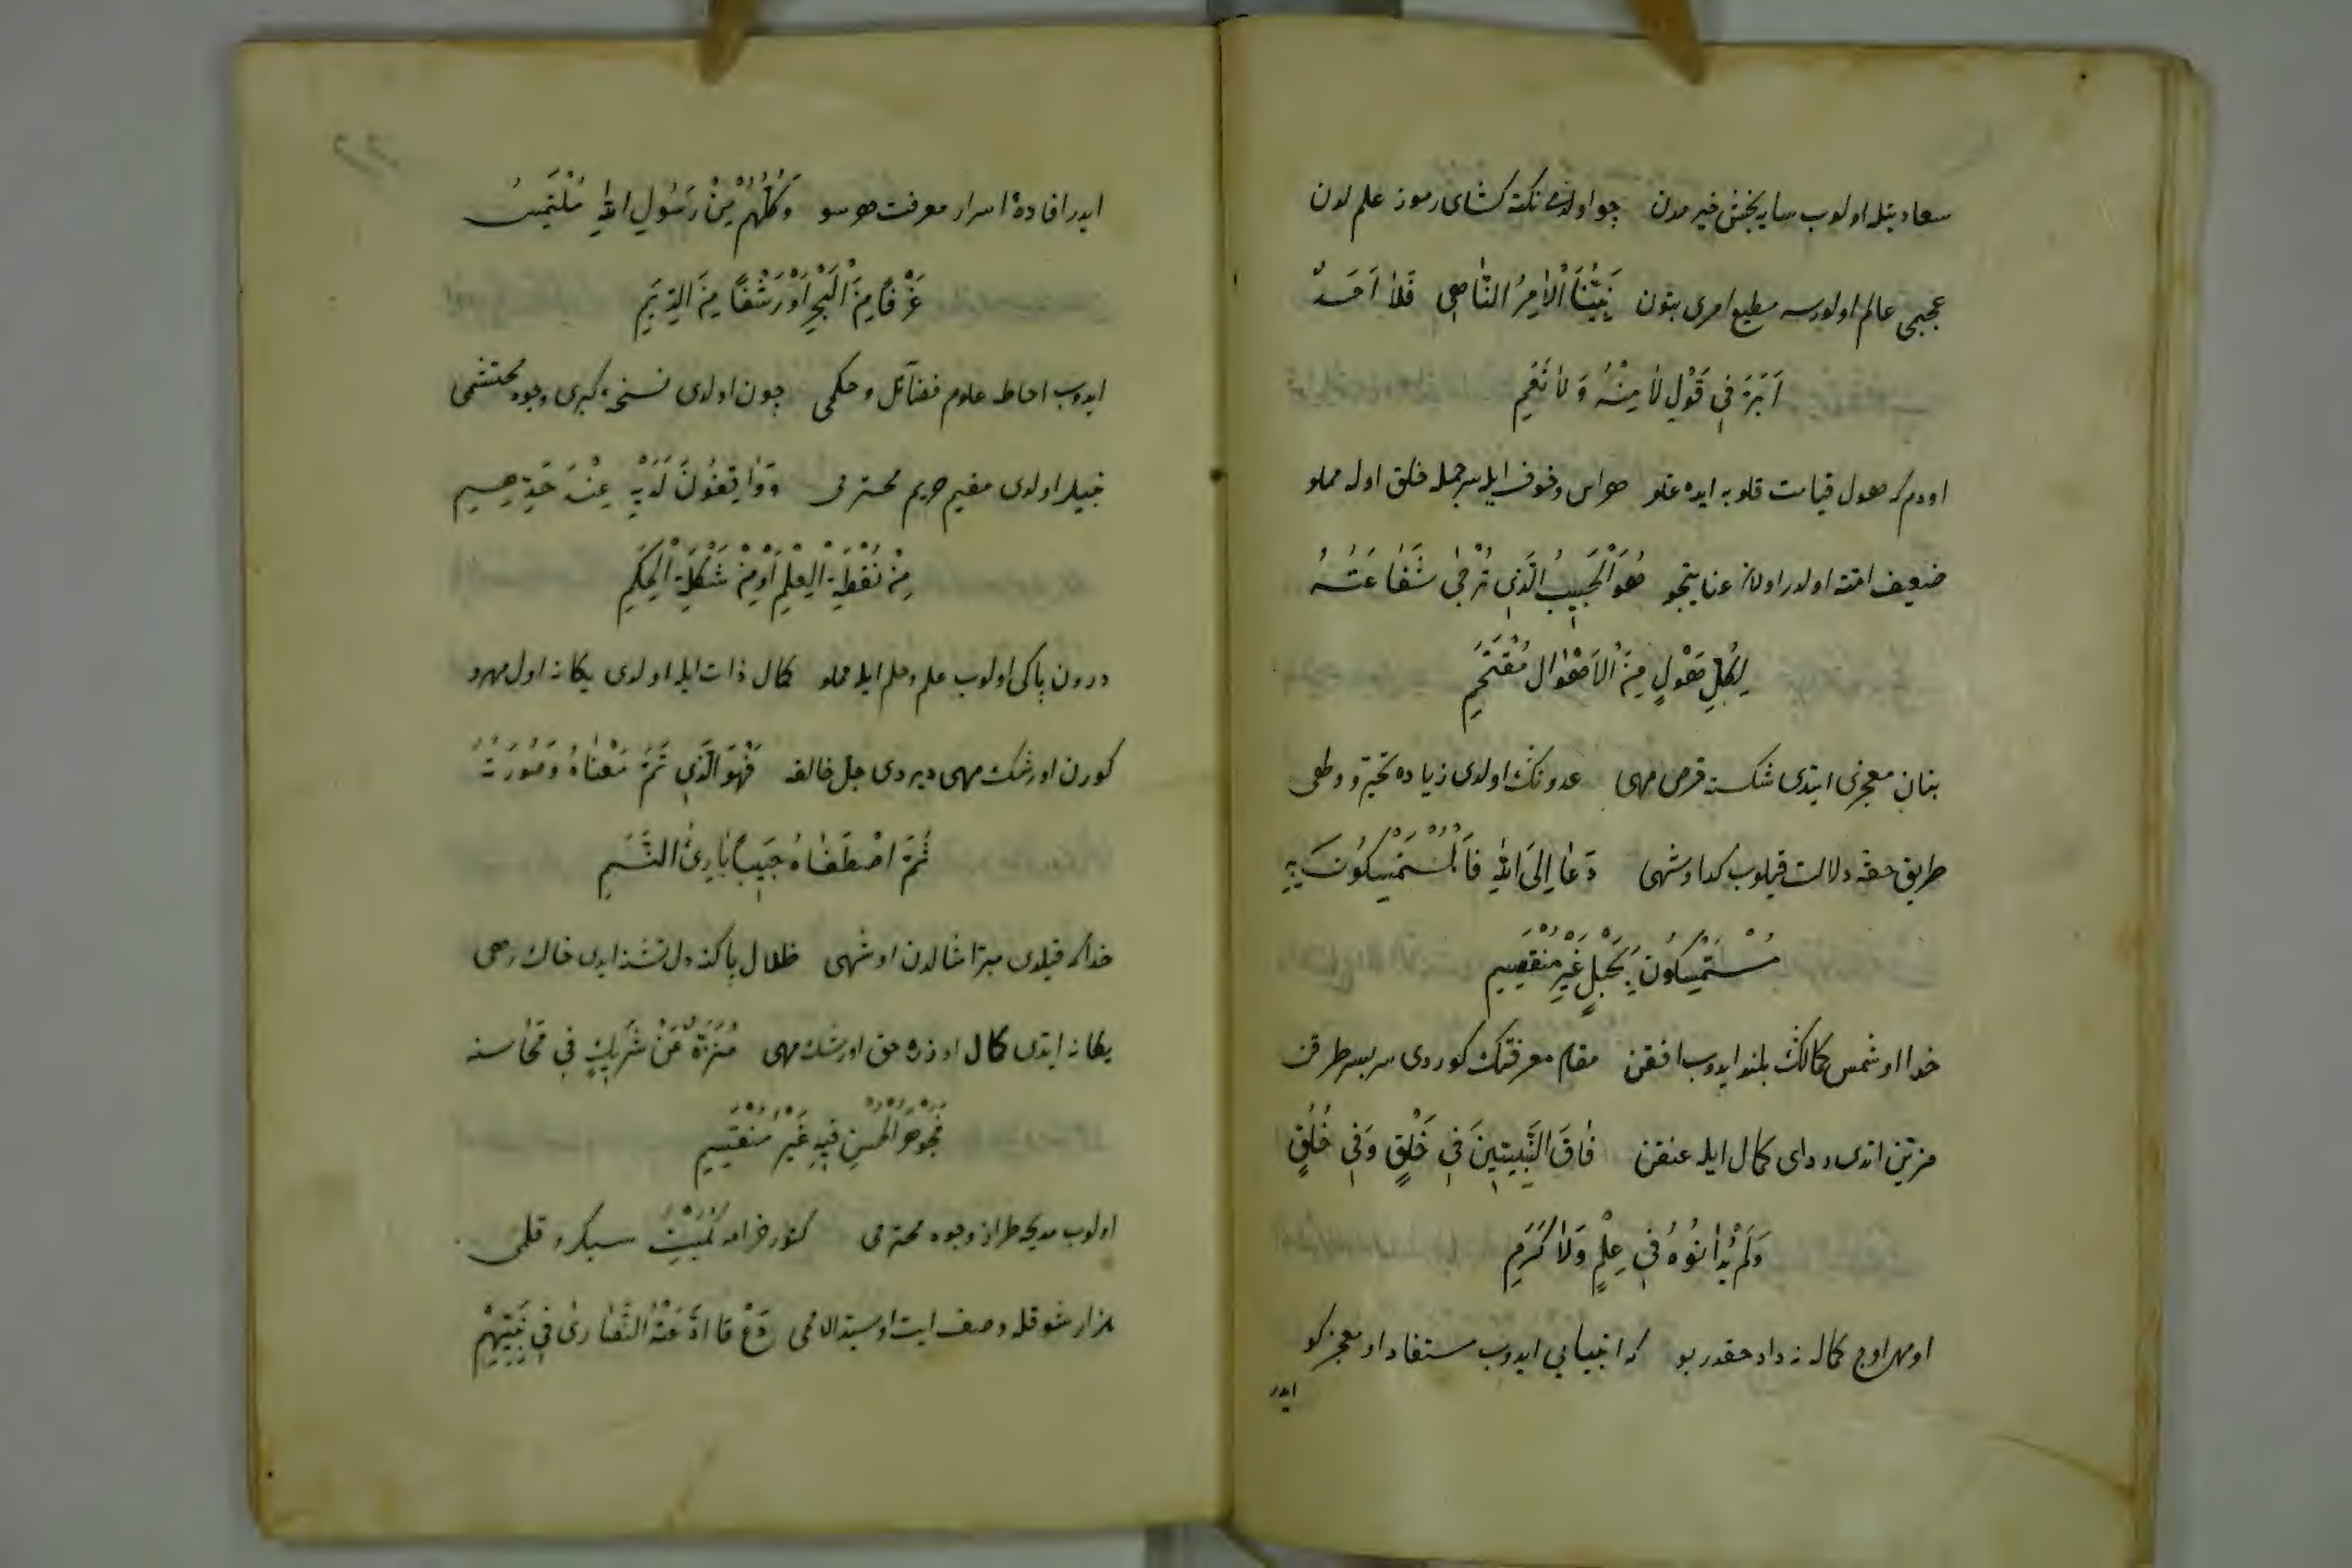 سعادتله اولوب سایه بخش خیرمدن چو اولدی نکته کشای رموز علم لدن
عجبمی عالم اولورسه مطیع امری بتون نَبِيُّنَا الْاٰمِرُ النَّاهِي فَلَا اَحَدٌ
اَبَرَّ فِي قَوْلِ لَا مِنْهُ وَلَا نَعَمِ
اودم که هول قیامت قلوبه ایده غلو هراس و خوف ایله سر جمله خلق اوله مملو
ضعیف امته اولدر اولان عنایتجو هُوَ الْحَبِيبُ الَّذِي تُرْجٰى شَفَاعَتُهُ
لِكُلِّ هَوْلٍ مِنَ الْاَهْوَالِ مُقْتَحَمِ
بنان معجزی ایتدی شکسته قرص مهی عدونک اولدی زیاده تحیر و ولهی
طریق حقه دلالت قیلوب کدا و شهی دَعَا اِلَى اللهِ فَالْمُسْتَمْسِكُونَ بِهِ
مُسْتَمْسِكُونَ بِحَبْلٍ غَيْرِ مُنْفَصِمِ
خدا او شمس کمالک بلند ایدوب افقن مقام معرفتک کوردی سربسر طرقن
مزین اتدی ردای کمال ایله عنقن فَاقَ النَّبِيِّينَ فِي خَلْقٍ وَفِي خُلُقٍ
وَلَمْ يُدَانُوهُ فِي عِلْمٍ وَلَا كَرَمِ
او مهر اوج کماله نه داد حقدر بو که انبیایی ایدوب مستفاد او معجزکو
ایدر
ایدر افاده اسرار معرفت هو سو وَكُلُّهُمْ مِنْ رَسُولِ اللهِ مُلْتَمِسٌ
غَرْفًا مِنَ الْبَحْرِ اَوْ رَشْفًا مِنَ الدِّيَمِ
ایدوب احاطه علوم فضائل و حکمی چون اولدی نسخه کبری وجود محتشمی
نبیلر اولدی مقیم حریم محترمی وَوَاقِفُونَ لَدَيْهِ عِنْدَ حَدِّهِمِ
مِنْ نُقْطَةِ الْعِلْمِ اَوْ مِنْ شَكْلَةِ الْحِكَمِ
درون پاکی اولوب علم و حلم ایله مملو کمال ذات ایله اولدی یکانه اول مهرو
کورن او رشک مهی دیردی جل خالقه فَهُوَ الَّذِي تَمَّ مَعْنَاهُ وَصُورَتُهُ
ثُمَّ اصْطَفَاهُ حَبِيبًا بَارِئُ النَّسَمِ
خدا که قیلدی مبرا مثالدن او شهی ظلال پاکنه دل تشنه ایدی خاک رهی
یکانه ایتدی کمال اوزره حق او رشک مهی مُنَزَّهٌ عَنْ شَرِيكٍ فِي مَحَاسِنِهِ
فَجَوْهَرُ الْحُسْنِ فِيهِ غَيْرُ مُنْقَسِمِ
اولوب مدیحه طراز وجود محترمی کتور خرامه کُمَیْتِ سبکرو قلمی
هزار شوقله وصف ایت او سید الاممی دَعْ مَا ادَّعَتْهُ النَّصَارٰى فِي نَبِيِّهِمْ